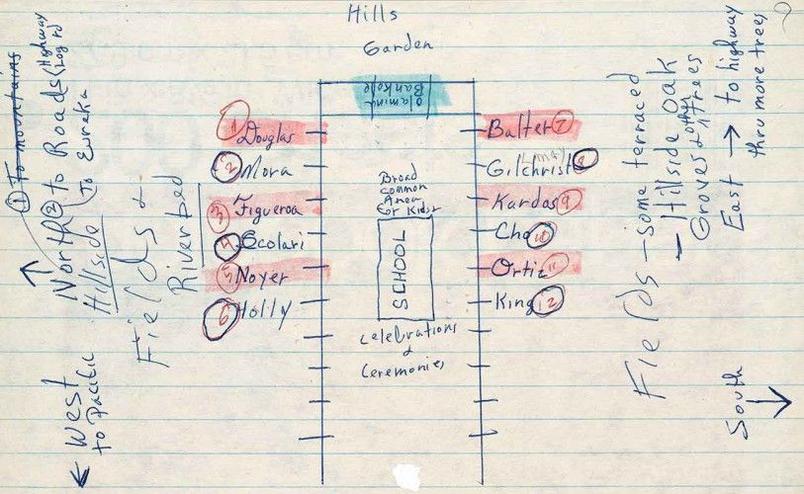 Hills
Garden
Olamina
Bankole
① Douglas
② Mora
③ Figueroa
④ Scolari
⑤ Noyer
⑥ Holly
Balter ⑦
Gilchrist ⑧
Kardos ⑨
Cho ⑩
Ortiz ⑪
King ⑫
Broad
common
Area
for Kids!
SCHOOL
Celebrations
&
Ceremonies
① To mountains
North ② to Roads (Highway
(To Eureka
Hillside
Fields &
Riverbed
West
to Pacific
Fields - some terraced
- Hillside oak
Groves & other trees
East → to highway
thru more trees
South